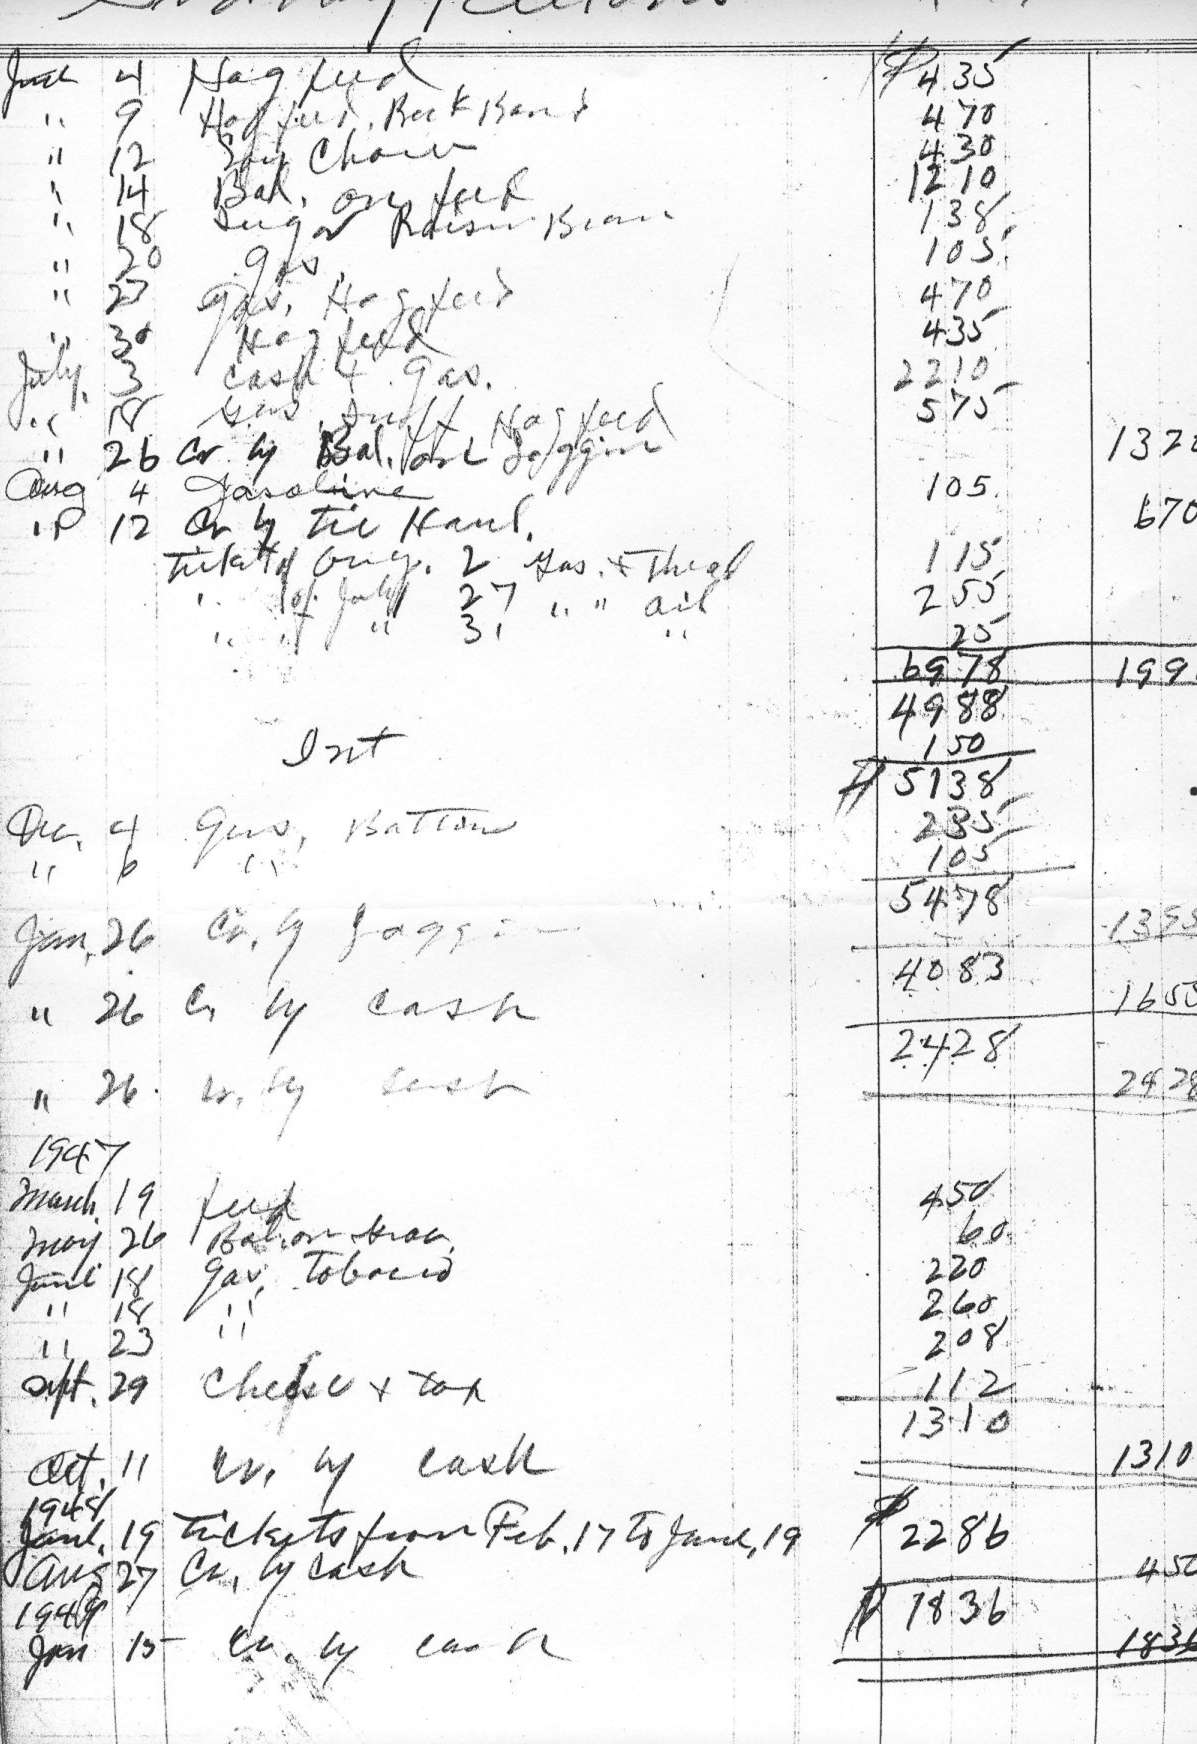 June 4 Hog feed $ 4 35
" 9 Hog feed, Back Band 4 70
" 12 Chow 4 30
" 14 Bal. on feed 12 10
" 18 Sugar Raisin Bran 1 38
" 20 Gas 1 05
" 27 Gas, Hog feed 4 70
" 30 Hog feed 4 35
July, 3 cash + Gas. 22 10
" 18 Gas, Hog feed 5 75
" 26 Cr by Bal. on Loggin 13 20
Aug 4 Gasoline 1 05
" 12 Cr by tie Haul. 6 70
Ticket of Aug. 2 Gas. + 1 15
" of July 27 " " oil 2 55
" " " 31 " 25
69 78 19 9
49 88
Int 1 50
$ 51 38
Dec, 4 Gas, 2 35
" 6 " 1 05
54 78
Jan, 26 Cr, by Loggin 13 95
40 83
" 26 Cr by cash 16 55
24 28
" 26 Cr. by cash 24 28
1947
March 19 feed 4 50
May 26 Bal. on 60
June 18 Gas, Tobacco 2 20
" 18 " 2 60
" 23 " 2 08
Sept. 29 Cheese + tax 1 12
13 10
Oct. 11 Cr, by cash 13 10
1948
June, 19 Tickets from Feb, 17 to June, 19 $ 22 86
Aug 27 Cr, by cash 4 50
$ 18 36
1949
Jan 15 Cr. by cash 18 36